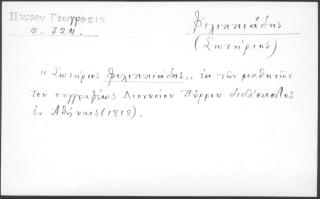 Πύρρου Γεωγραφία
σ. 324.
Φιλιππιάδης
(Σωτήριος)
"Σωτήριος Φιλιππιάδης,, ἐκ τῶν μαθητῶν
τοῦ συγγραφέως Διονυσίου Πύρρου διδάσκαλος
ἐν Ἀθήναις (1818).